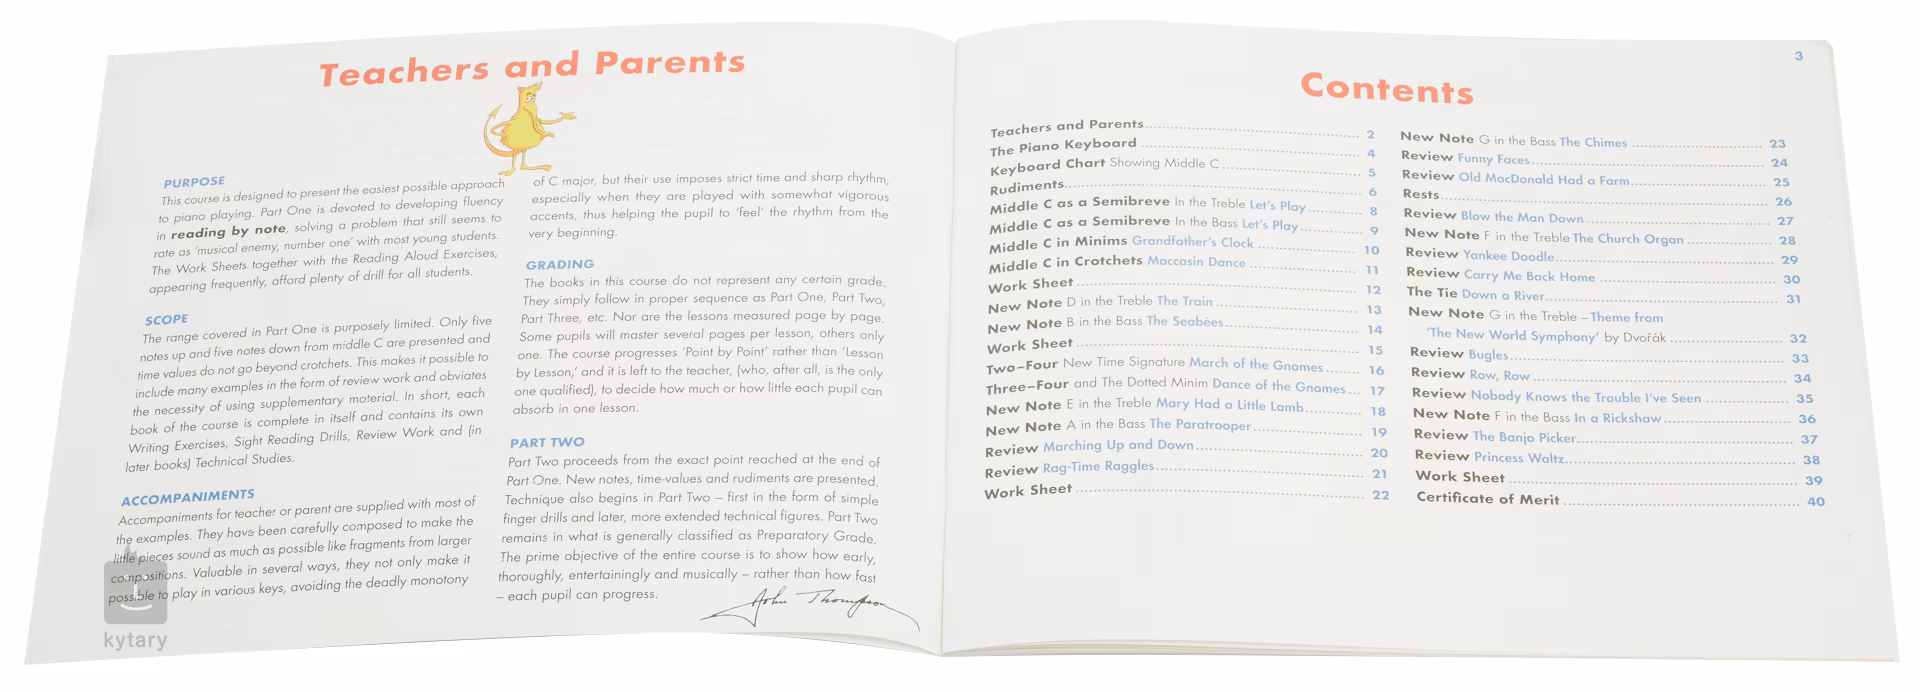 Teachers and Parents
PURPOSE
This course is designed to present the easiest possible approach
to piano playing. Part One is devoted to developing fluency
in reading by note, solving a problem that still seems to
rate as ‘musical enemy, number one’ with most young students.
The Work Sheets together with the Reading Aloud Exercises,
appearing frequently, afford plenty of drill for all students.
SCOPE
The range covered in Part One is purposely limited. Only five
notes up and five notes down from middle C are presented and
time values do not go beyond crotchets. This makes it possible to
include many examples in the form of review work and obviates
the necessity of using supplementary material. In short, each
book of the course is complete in itself and contains its own
Writing Exercises, Sight Reading Drills, Review Work and (in
later books) Technical Studies.
ACCOMPANIMENTS
Accompaniments for teacher or parent are supplied with most of
the examples. They have been carefully composed to make the
little pieces sound as much as possible like fragments from larger
compositions. Valuable in several ways, they not only make it
possible to play in various keys, avoiding the deadly monotony
of C major, but their use imposes strict time and sharp rhythm,
especially when they are played with somewhat vigorous
accents, thus helping the pupil to ‘feel’ the rhythm from the
very beginning.
GRADING
The books in this course do not represent any certain grade.
They simply follow in proper sequence as Part One, Part Two,
Part Three, etc. Nor are the lessons measured page by page.
Some pupils will master several pages per lesson, others only
one. The course progresses ‘Point by Point’ rather than ‘Lesson
by Lesson,’ and it is left to the teacher, (who, after all, is the only
one qualified), to decide how much or how little each pupil can
absorb in one lesson.
PART TWO
Part Two proceeds from the exact point reached at the end of
Part One. New notes, time-values and rudiments are presented.
Technique also begins in Part Two – first in the form of simple
finger drills and later, more extended technical figures. Part Two
remains in what is generally classified as Preparatory Grade.
The prime objective of the entire course is to show how early,
thoroughly, entertainingly and musically – rather than how fast
– each pupil can progress.
John Thompson
kytary
3
Contents
Teachers and Parents 2
The Piano Keyboard 4
Keyboard Chart Showing Middle C 5
Rudiments 6
Middle C as a Semibreve In the Treble Let’s Play 8
Middle C as a Semibreve In the Bass Let’s Play 9
Middle C in Minims Grandfather’s Clock 10
Middle C in Crotchets Moccasin Dance 11
Work Sheet 12
New Note D in the Treble The Train 13
New Note B in the Bass The Seabées 14
Work Sheet 15
Two–Four New Time Signature March of the Gnomes 16
Three–Four and The Dotted Minim Dance of the Gnomes 17
New Note E in the Treble Mary Had a Little Lamb 18
New Note A in the Bass The Paratrooper 19
Review Marching Up and Down 20
Review Rag-Time Raggles 21
Work Sheet 22
New Note G in the Bass The Chimes 23
Review Funny Faces 24
Review Old MacDonald Had a Farm 25
Rests 26
Review Blow the Man Down 27
New Note F in the Treble The Church Organ 28
Review Yankee Doodle 29
Review Carry Me Back Home 30
The Tie Down a River 31
New Note G in the Treble – Theme from
‘The New World Symphony’ by Dvořák 32
Review Bugles 33
Review Row, Row 34
Review Nobody Knows the Trouble I’ve Seen 35
New Note F in the Bass In a Rickshaw 36
Review The Banjo Picker 37
Review Princess Waltz 38
Work Sheet 39
Certificate of Merit 40